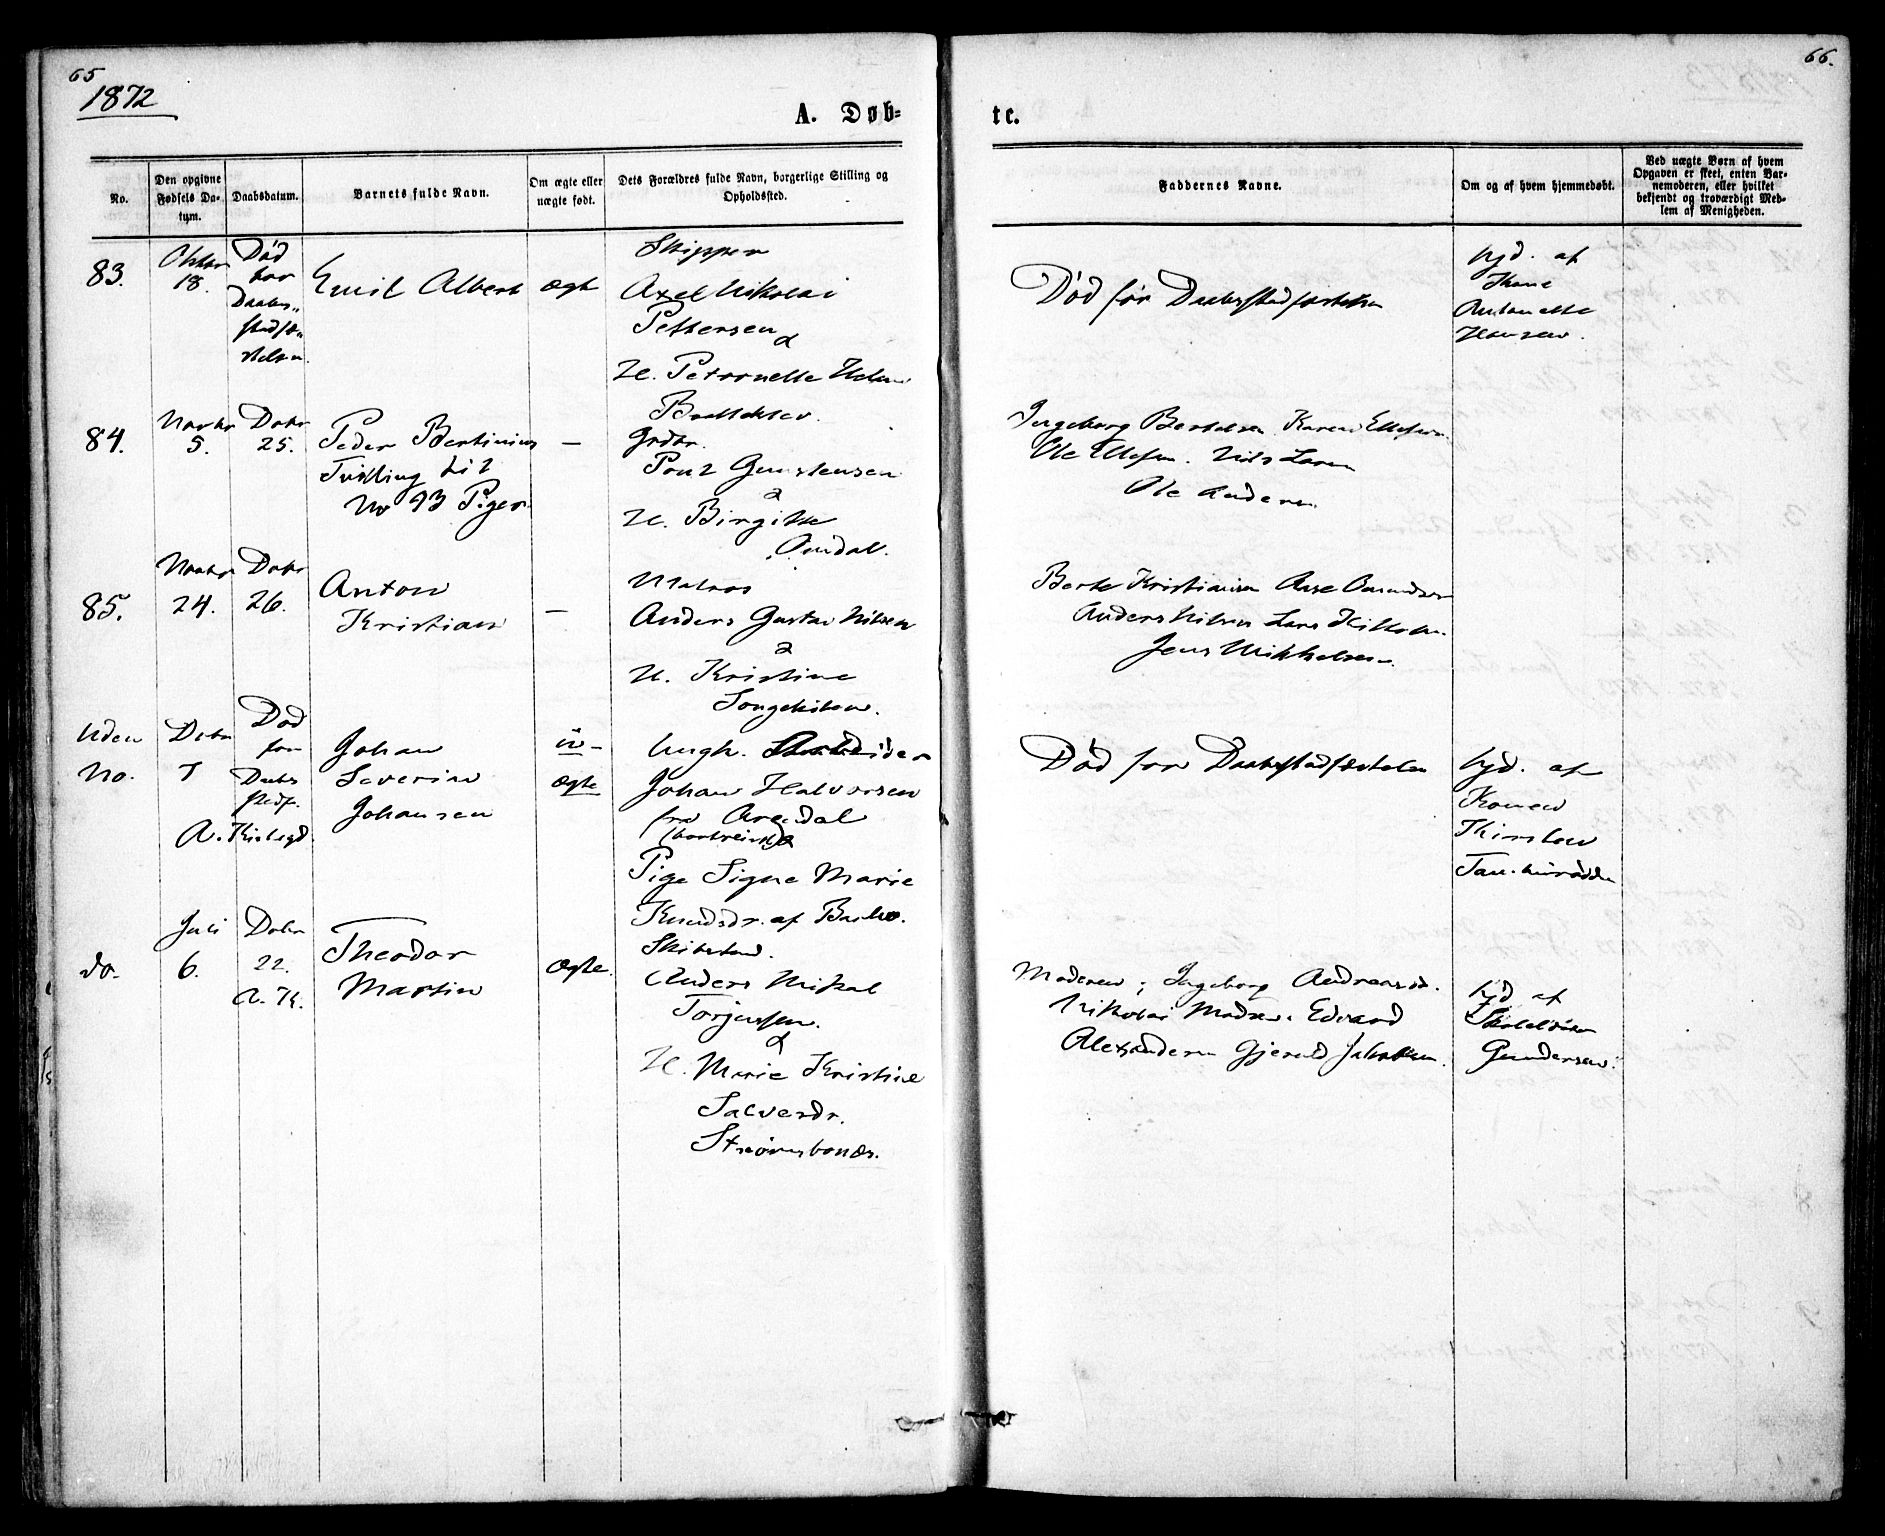 65
1872
A. Døb=
te.
66.
No.
Den opgivne
Fødsels Da-
tum.
Daabsdatum.
Barnets fulde Navn.
Om ægte eller
uægte født.
Dets Forældres fulde Navn, borgerlige Stilling og
Opholdssted.
Faddernes Navne.
Om og af hvem hjemmedøbt.
Ved uægte Børn af hvem
Opgaven er skeet, enten Bar-
nemoderen, eller hvilket
bekjendt og troværdigt Med-
lem af Menigheden.
83.
Oktbr
18.
Død
før
Daabs„
stadfæ„
stelsen.
Emil Albert
ægte
Skipper
Axel Nikolai
Pettersen
&
H. Petronelle Helene
Død før Daabsstadfæstelsen
hjd. af
Antonette
Hansen.
84.
Novbr
5.
Debr
25.
Peder Bertinius
Tvilling til
No 93 Piger
—
Grdbr.
Poul Gunstensen
&
H. Birgitte
Omdal.
Ingeborg Bertelsen Karen Ellefsen
Ole Ellefsen. Nils Larsen
Ole Andersen
85.
Novbr
24.
Debr
26.
Anton
Kristian
—
Matros
Anders Gustav Nilsen
&
H. Kristine
Songekilen.
Berte Kristiansen Aase Omundsen
Anders Nilsen Lars
Jens Mikkelsen.
Uden
No.
Debr
7
Død
før
Daabs
stadf.
A. Kirkegd.
Johan
Severin
Johansen
u-
ægte
Ungk. Arbeider
Johan Halvorsen
fra Arendal
(bortreist) &
Pige Signe Marie
Knudsdr. af Barbo.
Død før Daabsstadfæstelsen
hjd. af
Konen
Kirsten
do.
Juli
6.
Debr
22.
A. K.
Theodor
Martin
ægte.
Skibstmd.
Anders Mikal
Torjussen.
&
H. Marie Kristine
Salvesdr.
Strømsbonæs.
Moderen; Ingeborg Andreasd.
Nikolai Madsen. Edvard
Alexandersen Gjeruld Jakobsen.
hjd af
Skoleholder
Gundersen.